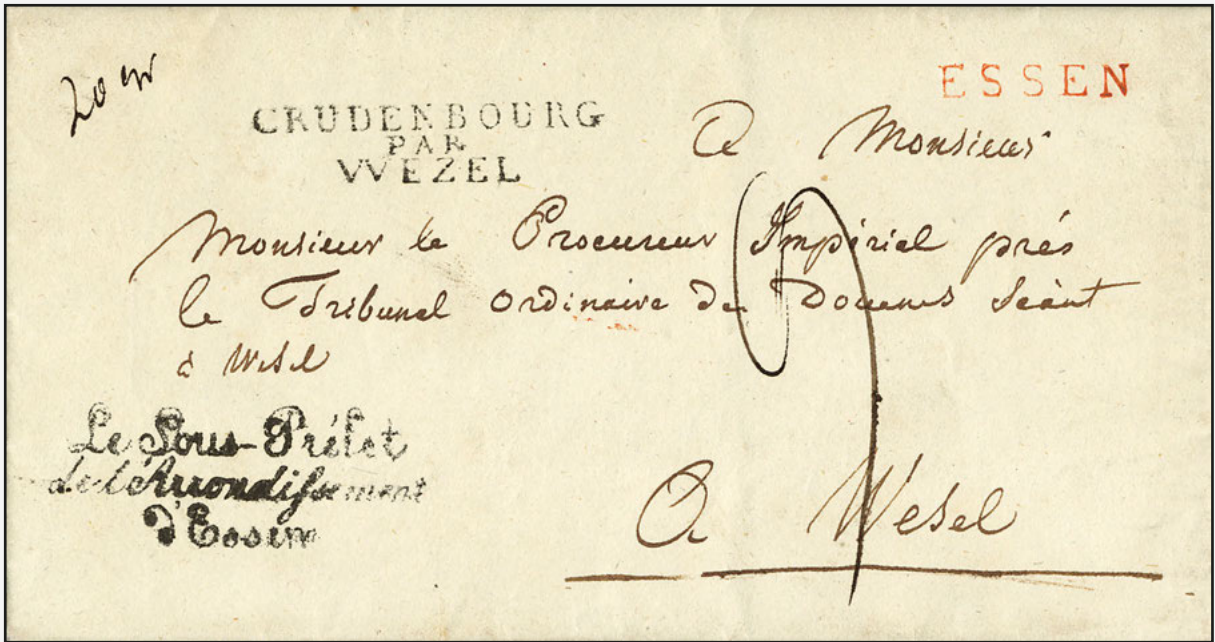 20 gr
ESSEN
CRUDENBOURG
PAR
WEZEL
A Monsieur
Monsieur le Procureur Impérial prés
le Tribunal ordinaire de Douanes Séant
à Wesel
Le Sous-Préfet
de l'Arrondissement
d'Essen
9
A Wesel